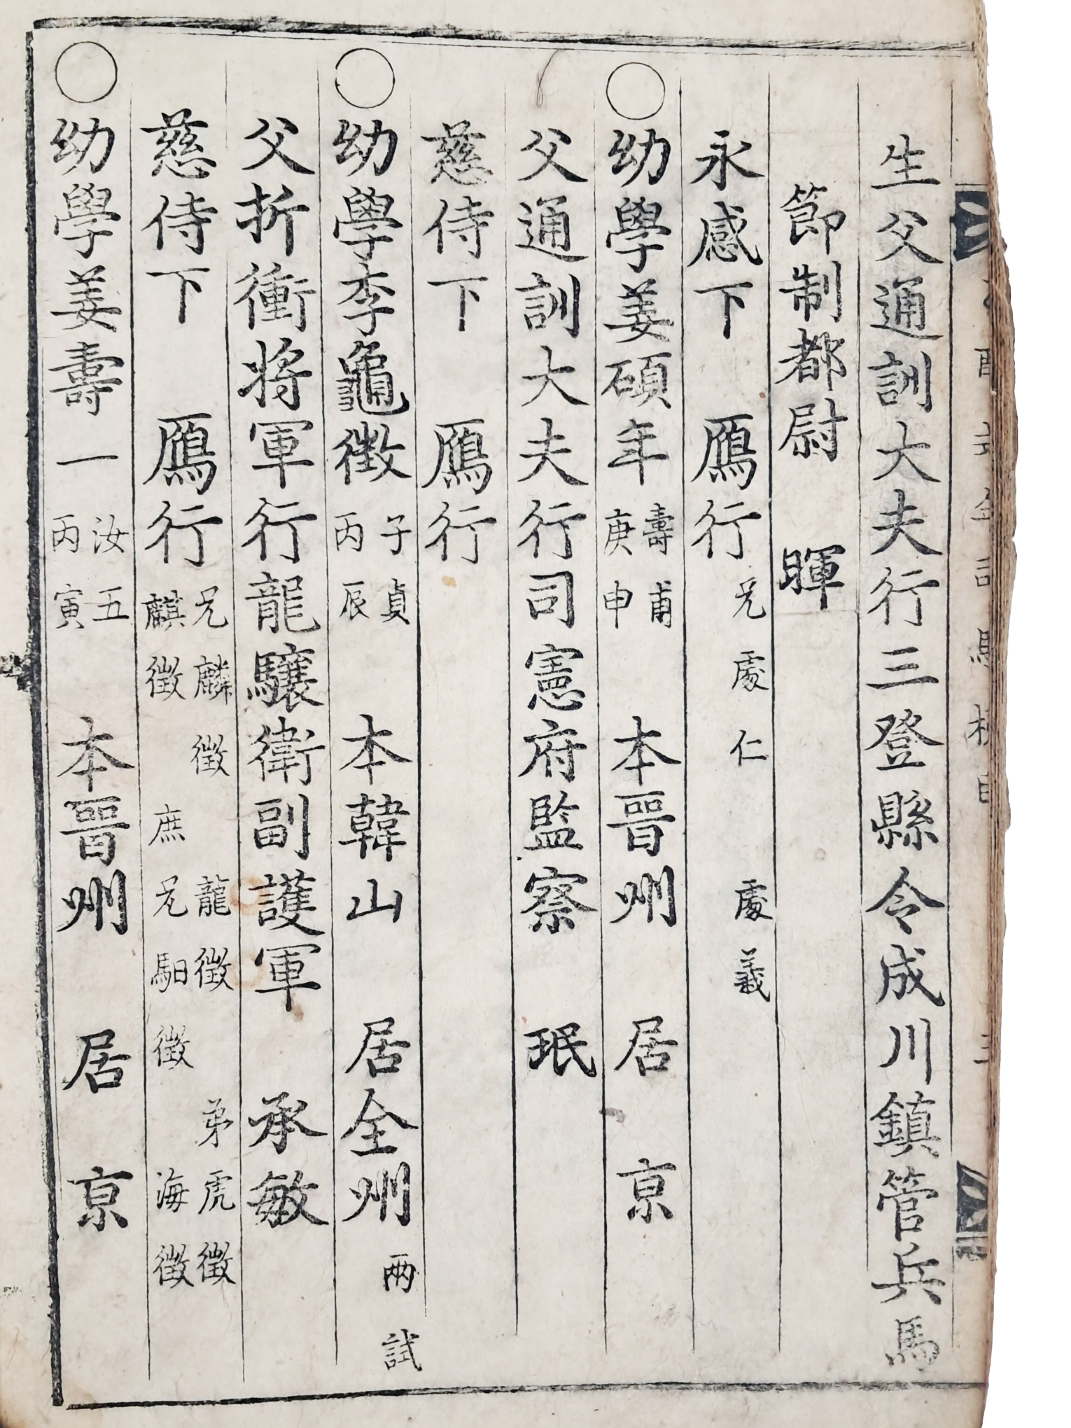 生父通訓大夫行三登縣令成川鎮管兵馬
節制都尉 暉
永感下 鴈行 兄處仁 處義
○幼學姜碩年 壽甫 庚申 本晉州 居京
父通訓大夫行司憲府監察 珉
慈侍下 鴈行
○幼學李龜徵 子貞 丙辰 本韓山 居全州 兩試
父折衝將軍行龍驤衛副護軍 承敏
慈侍下 鴈行 兄麟徵 龍徵 弟虎徵 麒徵 庶兄馹徵 海徵
○幼學姜壽一 汝五 丙寅 本晉州 居京